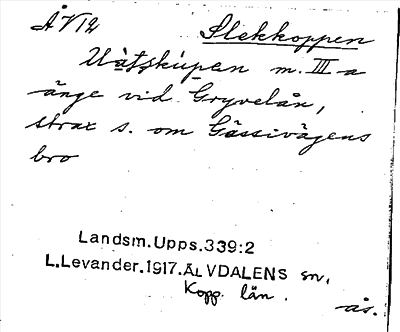 ÅV12 Slekkoppen
Uàtskùpen m. III a
änge vid Gryvelån,
strax s. om Gässivägens
bro
Landsm.Upps.339:2
L.Levander.1917.ÄLVDALENS sn,
Kopp. län.
ås.